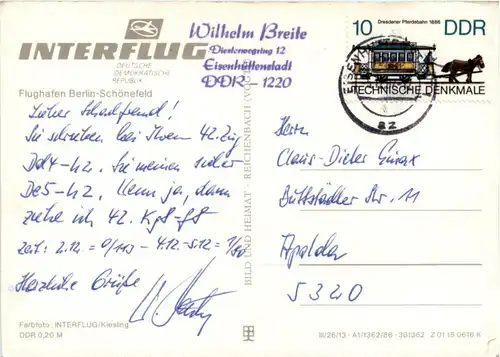 INTERFLUG
DEUTSCHE
DEMOKRATISCHE
REPUBLIK
Flughafen Berlin-Schönefeld
Wilhelm Breite
Diesterwegring 12
Eisenhüttenstadt
DDR - 1220
Dresdener Pferdebahn 1886
10 DDR
TECHNISCHE DENKMALE
Lieber Schachfreund!
Sie schreiben bei Ihrem 42. Zug
Dd4-h2. Sie meinen sicher
De5-h2. Wenn ja, dann
ziehe ich 42. Kg8-f8
Zeit: 2.12. = 0/113 - 4.12.-5.12. = 1/
Herzliche Grüße
Herrn
Claus-Dieter
Buttstädter Str. 11
Apolda
5320
BILD UND HEIMAT · REICHENBACH (VOGTL)
Farbfoto: INTERFLUG/Kiesling
DDR 0,20 M
III/26/13 · A1/1362/86 · 301362 Z 01 15 0616 K